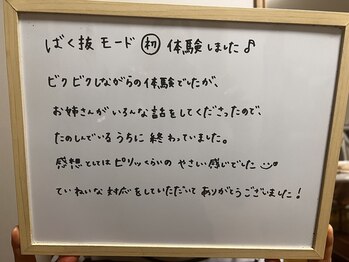 ばく抜モード 初 体験しました♪
ビクビクしながらの体験でしたが、
お姉さんがいろんな話をしてくださったので、
たのしんでいるうちに終わっていました。
感想としてはピリッくらいのやさしい感じでした
ていねいな対応をしていただいてありがとうございました!